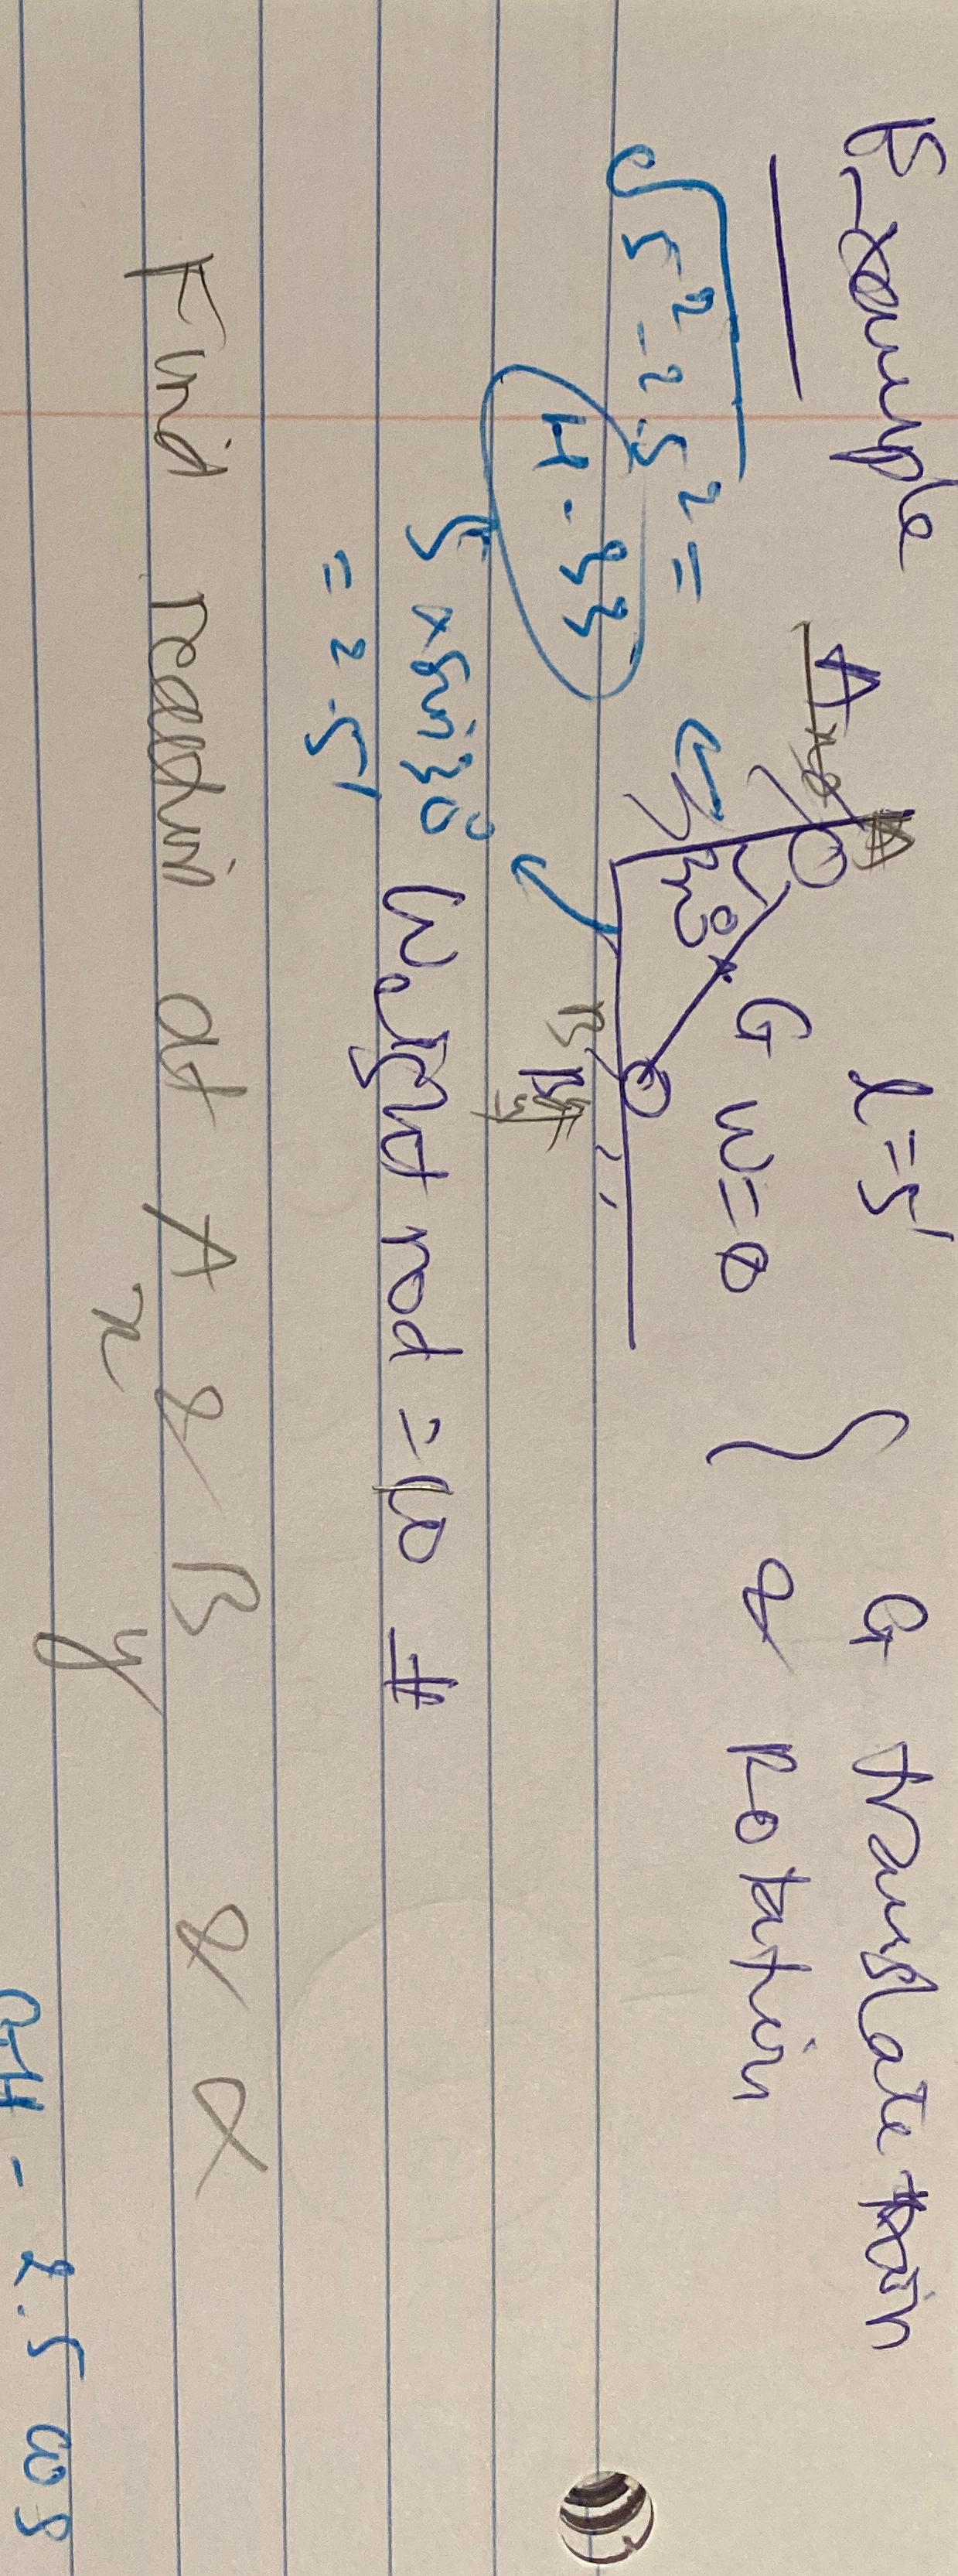 Example
l = 5'
G translate
& Rotation
A
G
w = 0
30°
B
√5² - 2.5² =
4.33
5 x sin 30°
= 2.5'
Weight rod = 10 #
Find reaction at A x & B y & α
- 2.5 cos